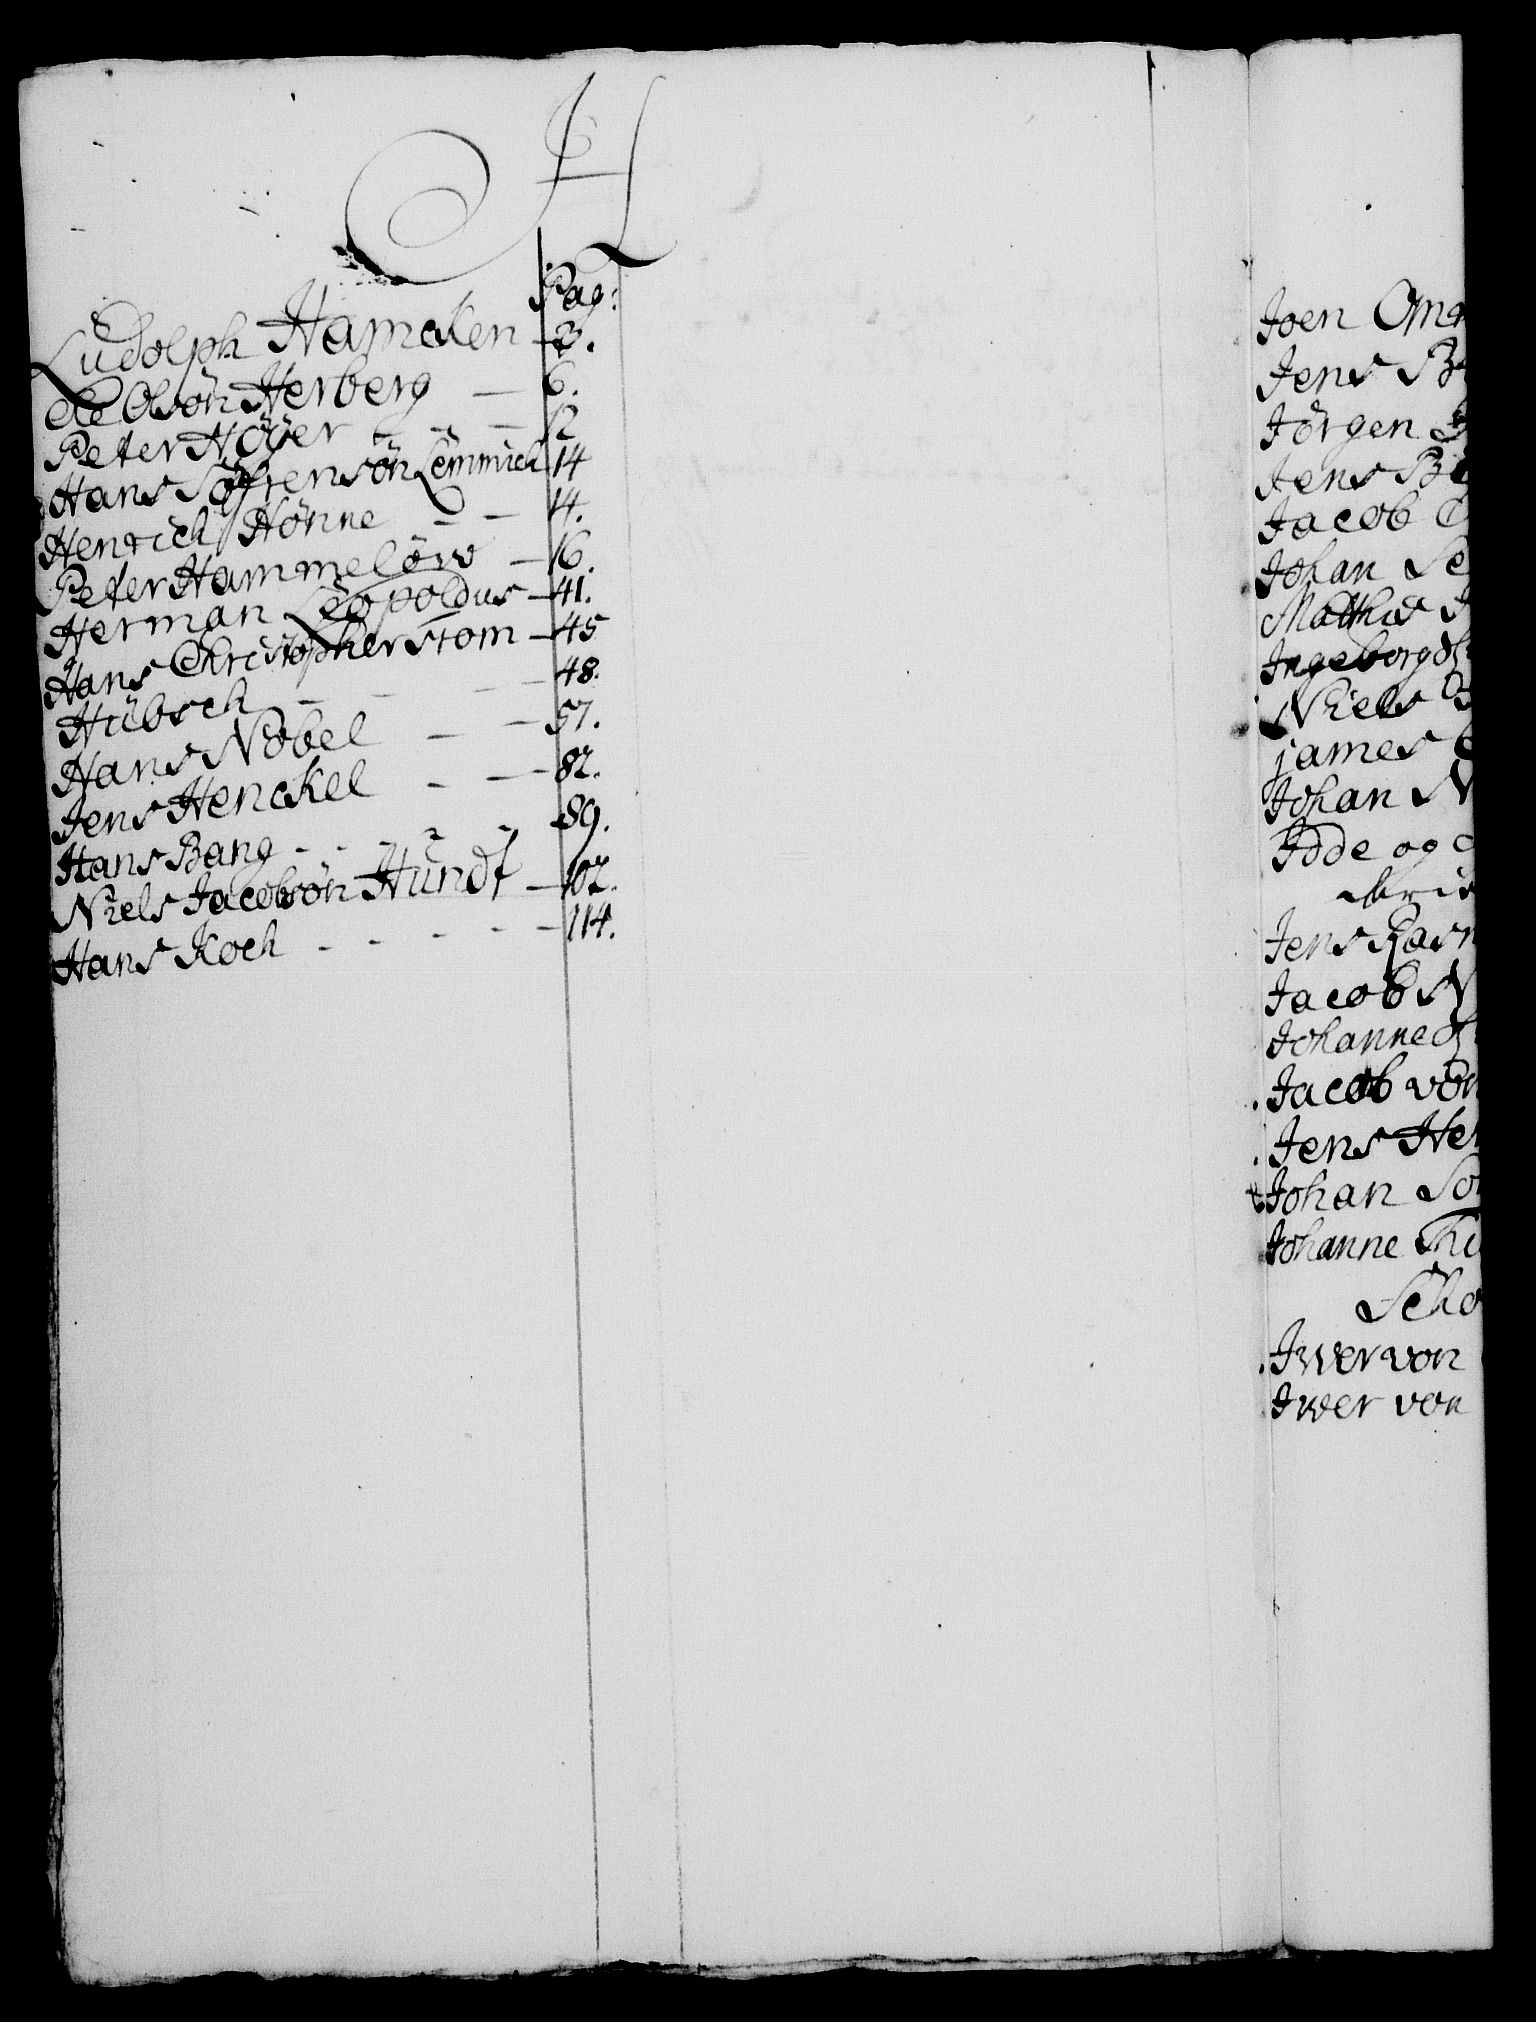 H
Pag:
Ludolph Hamcken - 3.
Ole Olsön Herberg - 6.
Peter Höÿer - - - 12
Hans Söfrensön Lemmich 14
Henrich Hönne - - 14.
Peter Hammelöw - 16.
Herman Leopoldus - 41.
Hans Christopher Stom - 45
Hübsch - - - - 48.
Hans Nobel - - 57.
Jens Henckel - - 82.
Hans Bang - - - - 89.
Niels Jacobsön Hundt - 102.
Hans Koch - - - - - 114.
Joen
Jens
Jörgen
Jens
Jacob
Johan
Mathis
Ingeborg
Niels
james
Johan
Jøde og
Jens Rasm
Jacob
Johanne
Jacob von
Jens Hen
Johan
Johanne
Scho
Iwer von
Iwer von